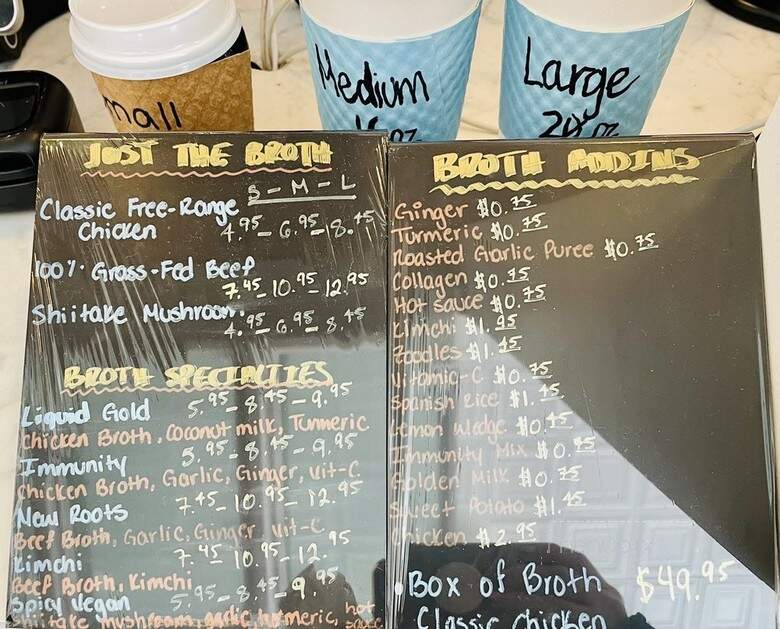 mall
Medium
16 oz
Large
20 oz
JUST THE BROTH
S - M - L
Classic Free-Range
Chicken 4.95 - 6.95 - 8.45
100% Grass-Fed Beef
7.45 - 10.95 - 12.95
Shiitake Mushroom
4.95 - 6.95 - 8.45
BROTH SPECIALTIES
Liquid Gold 5.95 - 8.45 - 9.95
Chicken Broth, Coconut milk, Turmeric
Immunity 5.95 - 8.45 - 9.95
Chicken Broth, Garlic, Ginger, Vit-C
New Roots 7.45 - 10.95 - 12.95
Beef Broth, Garlic, Ginger, Vit-C
Kimchi 7.45 - 10.95 - 12.95
Beef Broth, Kimchi
Spicy Vegan 5.95 - 8.45 - 9.95
Shiitake mushroom, garlic, turmeric, hot sauce
BROTH ADDINS
Ginger $0.75
Turmeric $0.75
Roasted Garlic Puree $0.75
Collagen $0.75
Hot sauce $0.75
Kimchi $1.95
Zoodles $1.45
Vitamic-C $0.75
Spanish Rice $1.45
Lemon wedge $0.45
Immunity Mix $0.95
Golden Milk $0.75
Sweet Potato $1.45
Chicken $2.95
Box of Broth $49.95
Classic Chicken